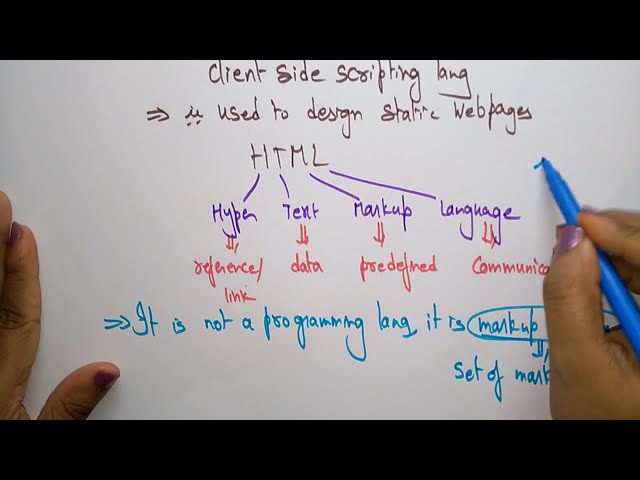 Client side scripting lang
⇒ is used to design static Webpages
HTML
Hyper Text Markup Language
reference/ data predefined Communica
link
⇒ It is not a programming lang, it is markup
Set of mark